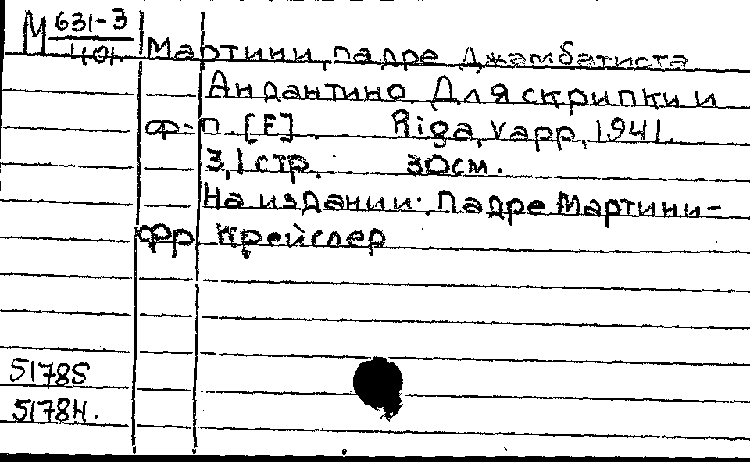 М 631-3
401 Мартини, падре Джамбатиста
Андантино Для скрипки и
ф-п. [F] Riga, Vapp, 1941.
3,1 стр. 30 см.
На издании: Падре Мартини-
Фр. Крейслер
5178S
5178H.